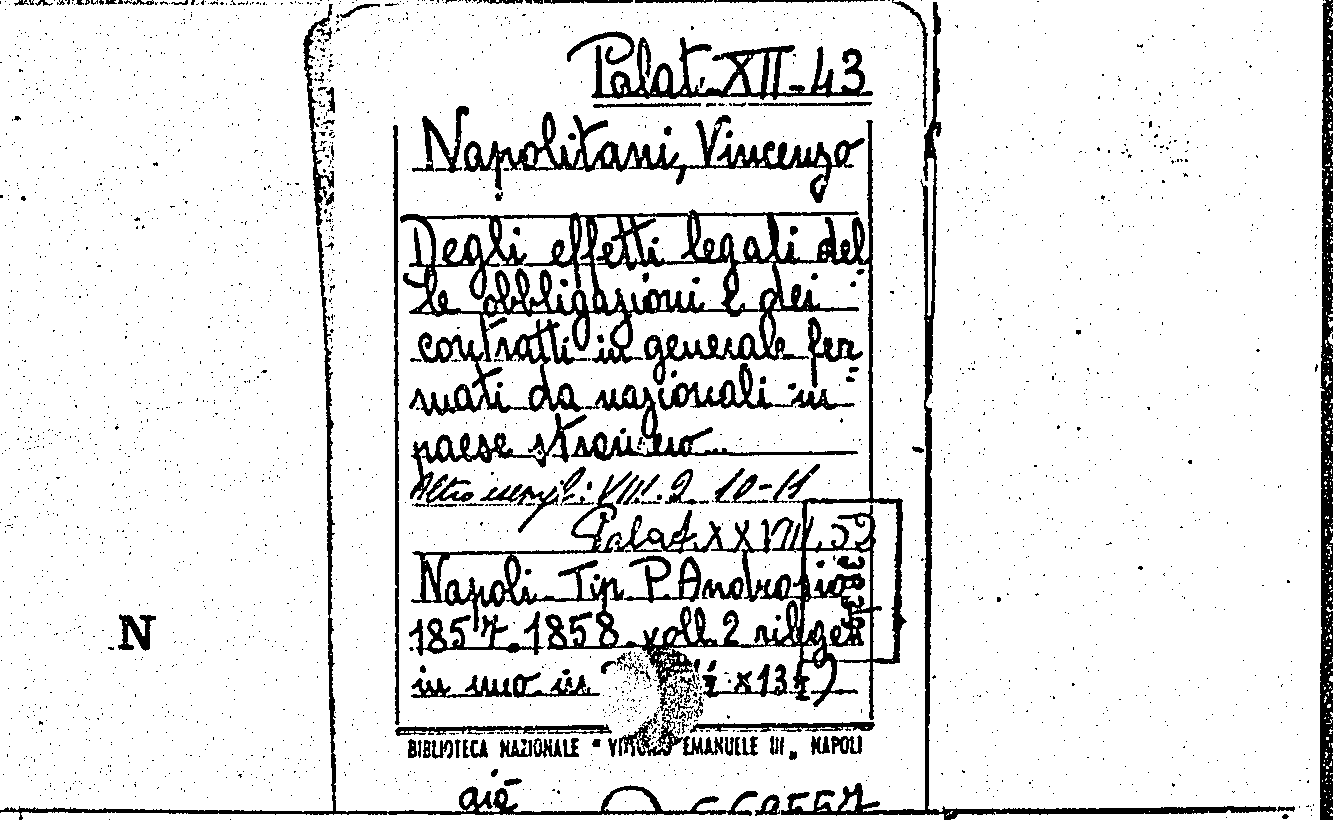 Palat. XII-43
Napolitani, Vincenzo
Degli effetti legali del
le obbligazioni e dei
contratti in generale fer
mati da nazionali in
paese straniero...
Altro esempl.: VIII. 9. 10-11
Palat. XXVIII. 52
Napoli - Tip. P. Androsio
1857-1858. voll. 2 rilegati
in uno in x13½)
N
BIBLIOTECA NAZIONALE "VITTORIO EMANUELE III" NAPOLI
già